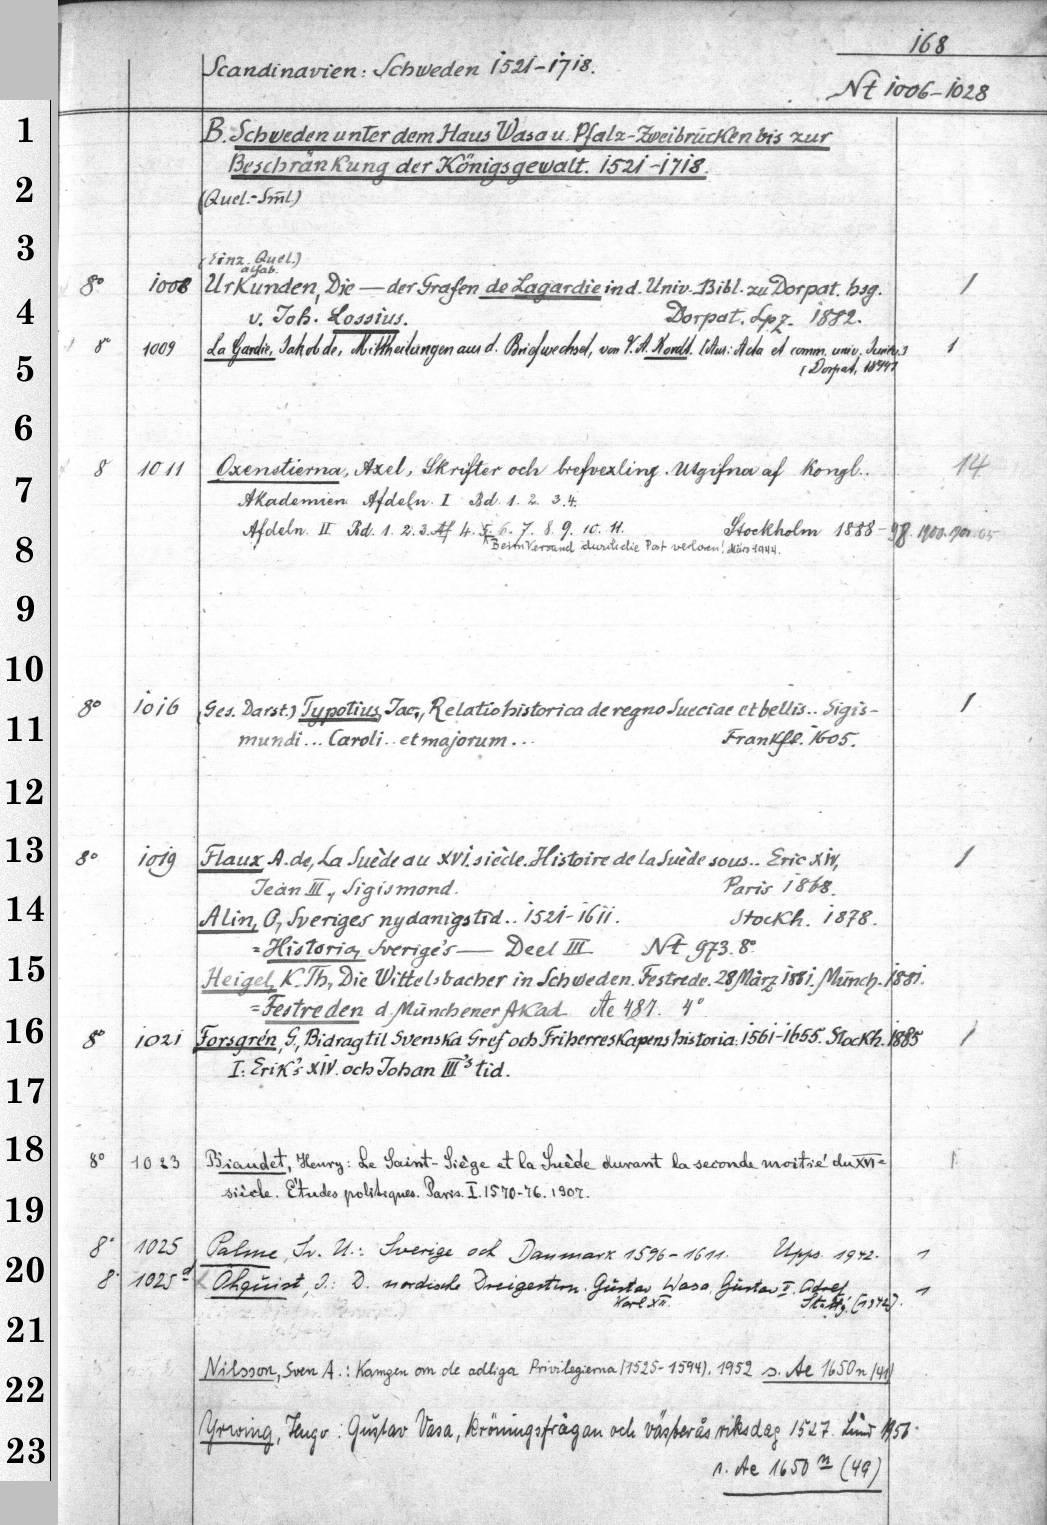 168
Scandinavien: Schweden 1521-1718.
Nt 1006-1028
1
B. Schweden unter dem Haus Wasa u. Pfalz-Zweibrücken bis zur
Beschränkung der Königsgewalt. 1521-1718.
2
(Quel.-Sml)
3
(Einz. Quel.)
8° 1008 Urkunden, Die — der Grafen de Lagardie in d. Univ. Bibl. zu Dorpat. hsg. 1
4
v. Joh. Lossius. Dorpat. Lpz. 1882.
8° 1009 La Gardie, Jakob de, Mittheilungen aus d. Briefwechsel, von F. A. [Aus: Acta et comm. univ. 1
5
Dorpat, 1894]
6
8 1011 Oxenstierna, Axel, Skrifter och brefvexling. Utgifna af Kongl.. 14
7
Akademien Afdeln. I Bd. 1. 2. 3. 4.
Afdeln. II Bd. 1. 2. 3. 4. 5. 6. 7. 8. 9. 10. 11. Stockholm 1888-98. 1900. 05
8
Beim Versand durch die Post verloren! März 1944.
9
10
8° 1016 (Ges. Darst.) Typotius, Jac., Relatio historica de regno Sueciae et bellis.. Sigis- 1
11
mundi... Caroli.. et majorum... Frankft. 1605.
12
13
8° 1019 Flaux, A. de, La Suède au XVI. siècle. Histoire de la Suède sous.. Eric XIV, 1
Jean III., Sigismond. Paris 1868.
14
Alin, O, Sveriges nydanigstid.. 1521-1611. Stockh. 1878.
= Historia, Sverige's — Deel III Nt 973. 8°
15
Heigel, K. Th., Die Wittelsbacher in Schweden. Festrede. 28 März 1881. Münch. 1881.
= Festreden d. Münchener Akad. Ae 481. 4°
16
8° 1021 Forsgrén, G, Bidrag til Svenska Gref och Friherreskapens historia: 1561-1655. Stockh. 1885 1
I: Erik's XIV. och Johan III's tid.
17
18
8° 1023 Biaudet, Henry: Le Saint-Siège et la Suède durant la seconde moitié du XVIe 1
siècle. Études politiques. Paris. I. 1570-76. 1907.
19
8° 1025 Palme, Sv. U.: Sverige och Danmark 1596-1611. Upps. 1942. 1
20
8° 1025d Öhquist, J.: D. nordische Dreigestirn. Gustav Wasa, Gustav II. Adolf, 1
Karl XII. Stuttg. [1942].
21
Nilsson, Sven A.: Kampen om de adliga Privilegierna (1525-1594). 1952 s. Ae 1650n (41)
22
Yrwing, Hugo: Gustav Vasa, kröningsfrågan och västerås riksdag 1527. Lund 1956.
23
s. Ae 1650 n (49)